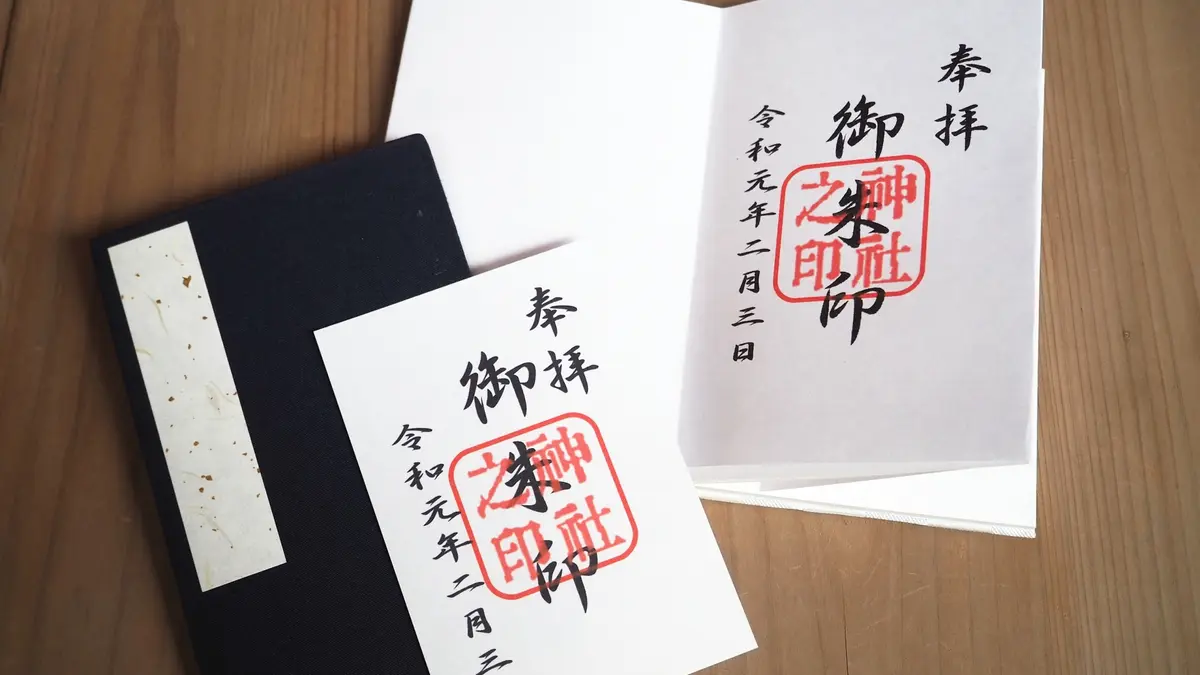 奉拝
御朱印
神社之印
令和元年二月三日
奉拝
御朱印
神社之印
令和元年二月三